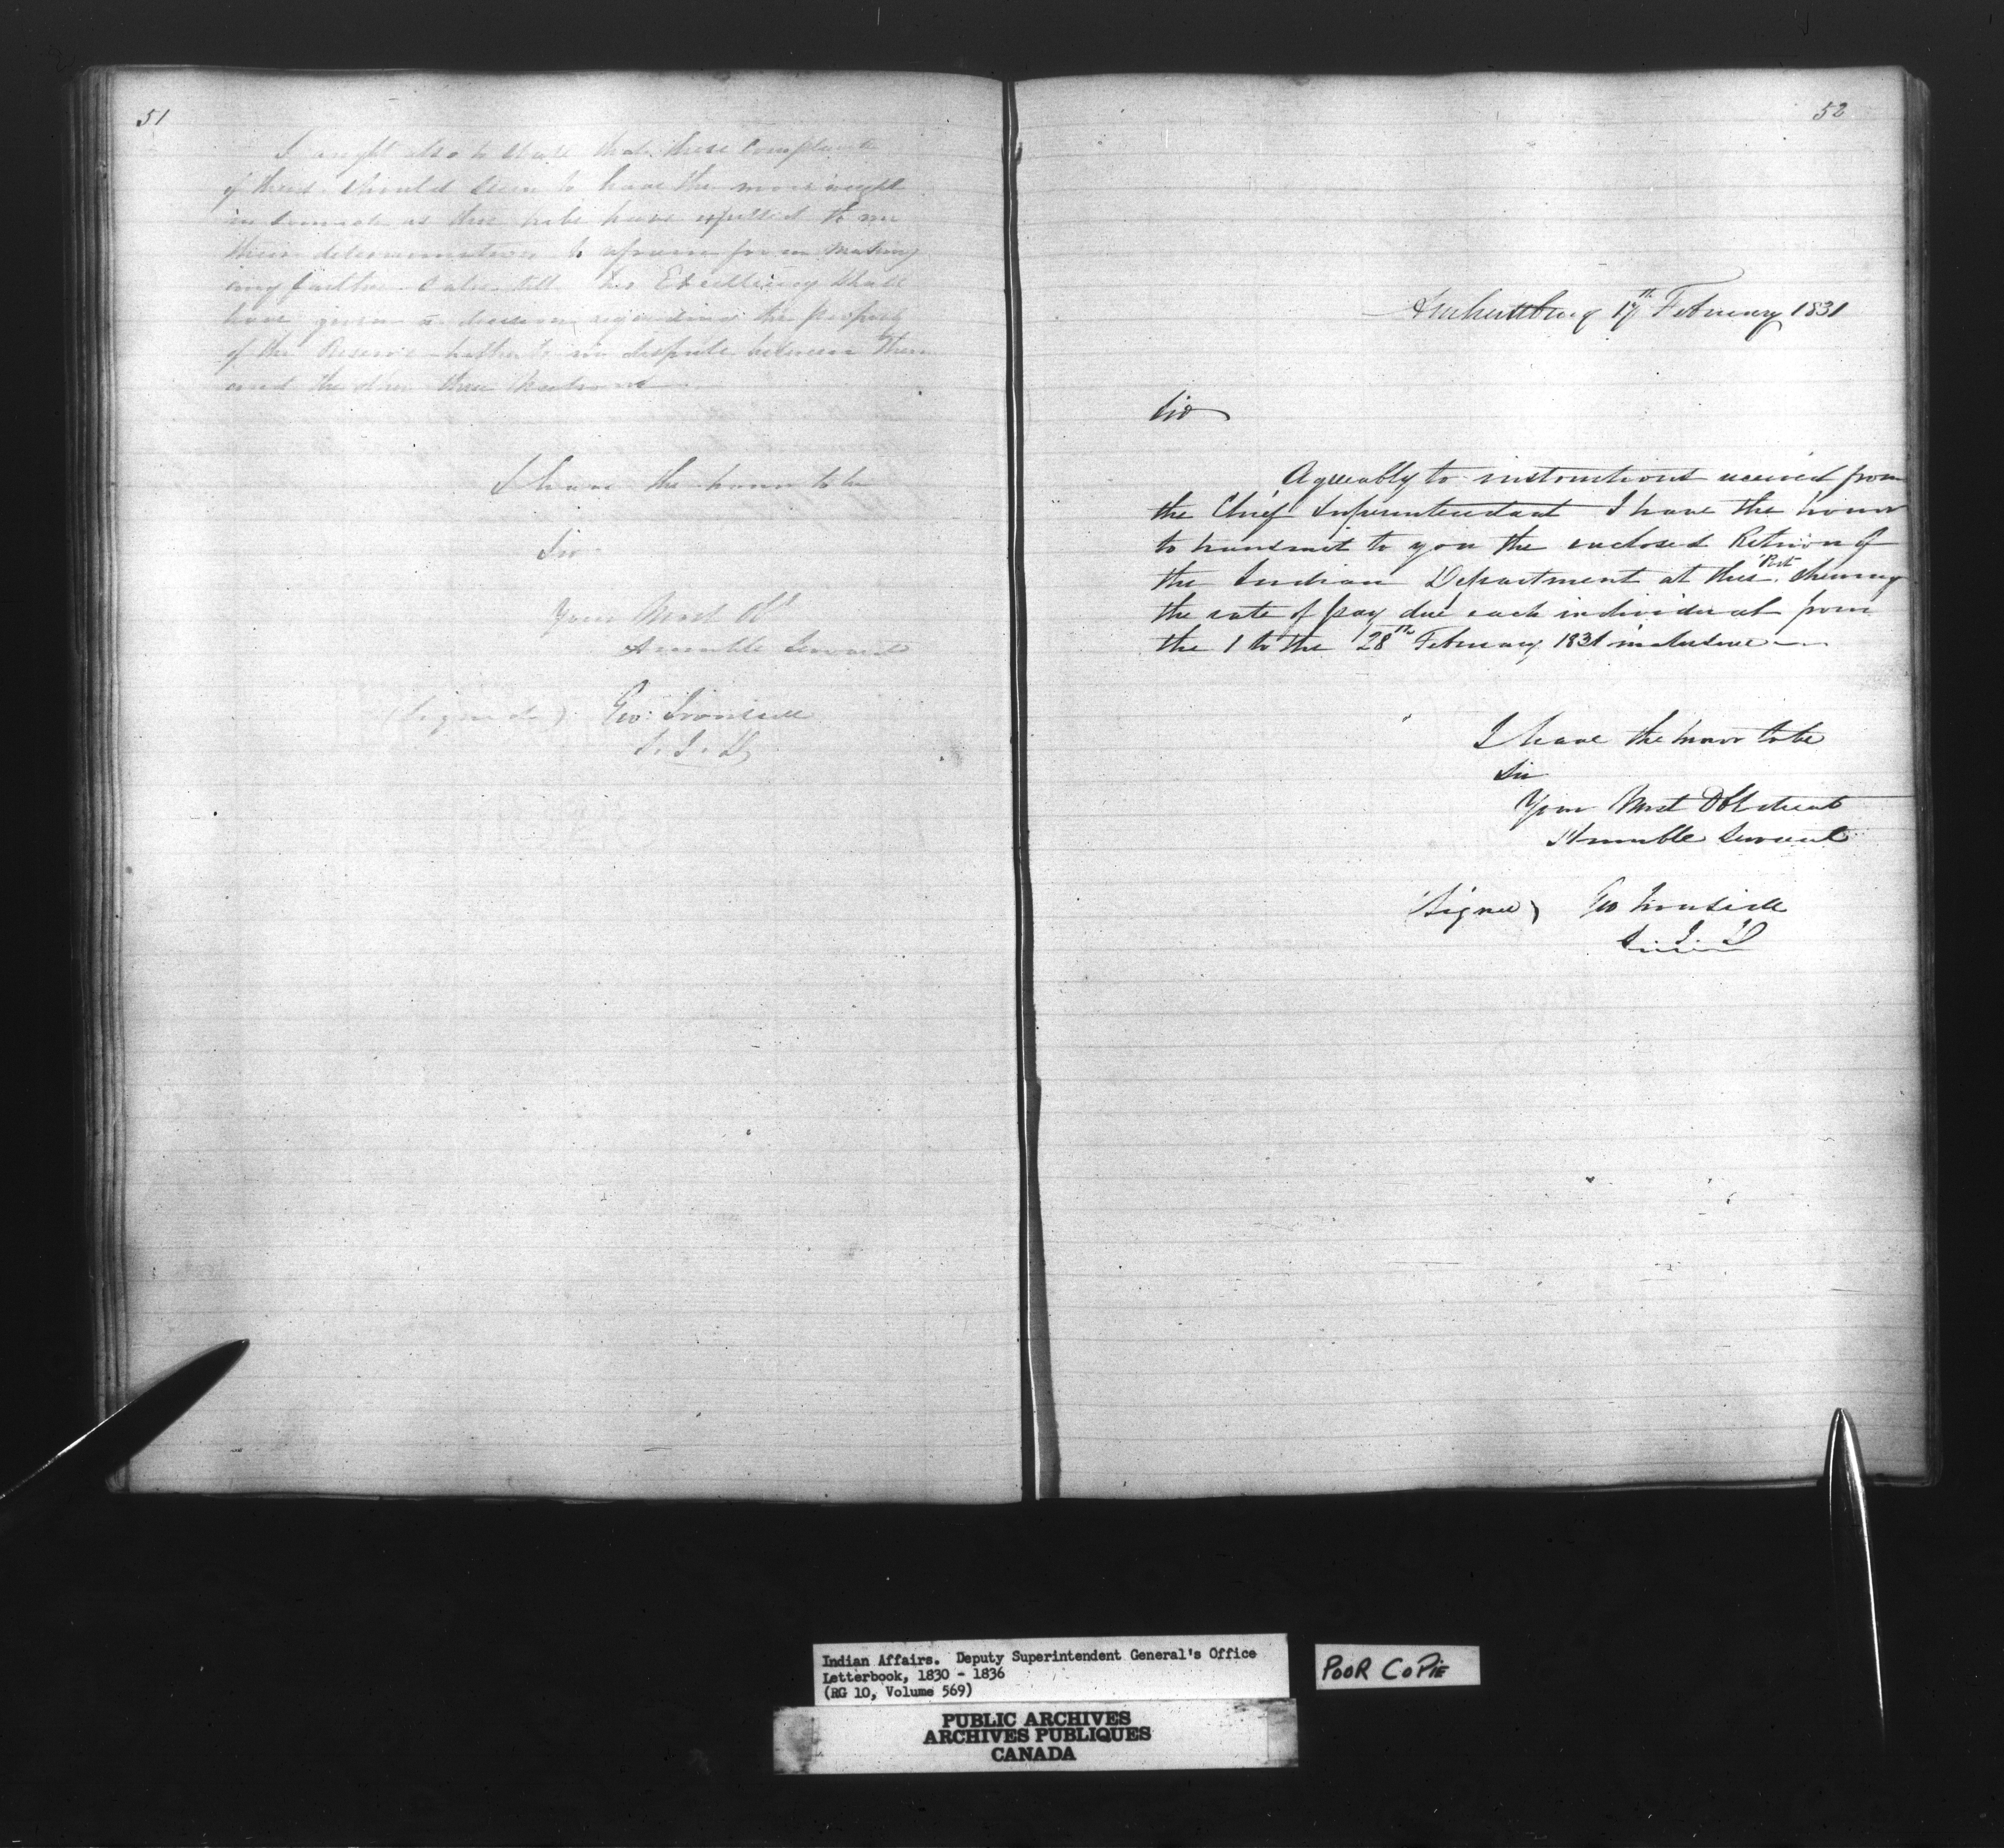 51
I ought also to state that these Complaints
of theirs should seem to have the more weight
in as much as this tribe have expressed to me
their determination to refrain from making
any further Sales till His Excellency shall
have given a decision regarding the property
of the Reserve hitherto in dispute between them
and the other three Nations
I have the honor to be
Sir
Your Most Obt
Humble Servant
(Signed) Geo: Ironside
S. I. D
52
Amherstburg 17th February 1831
Sir
Agreeably to instructions received from
the Chief Superintendant I have the honor
to transmit to you the enclosed Return of
the Indian Department at this Post shewing
the rate of pay due each individual from
the 1 to the 28th February 1831 inclusive
I have the honor to be
Sir
Your Most Obedient
Humble Servant
(Signed) Geo Ironside
S. I. D
Indian Affairs. Deputy Superintendent General's Office
Letterbook, 1830 - 1836
(RG 10, Volume 569)
POOR COPIE
PUBLIC ARCHIVES
ARCHIVES PUBLIQUES
CANADA